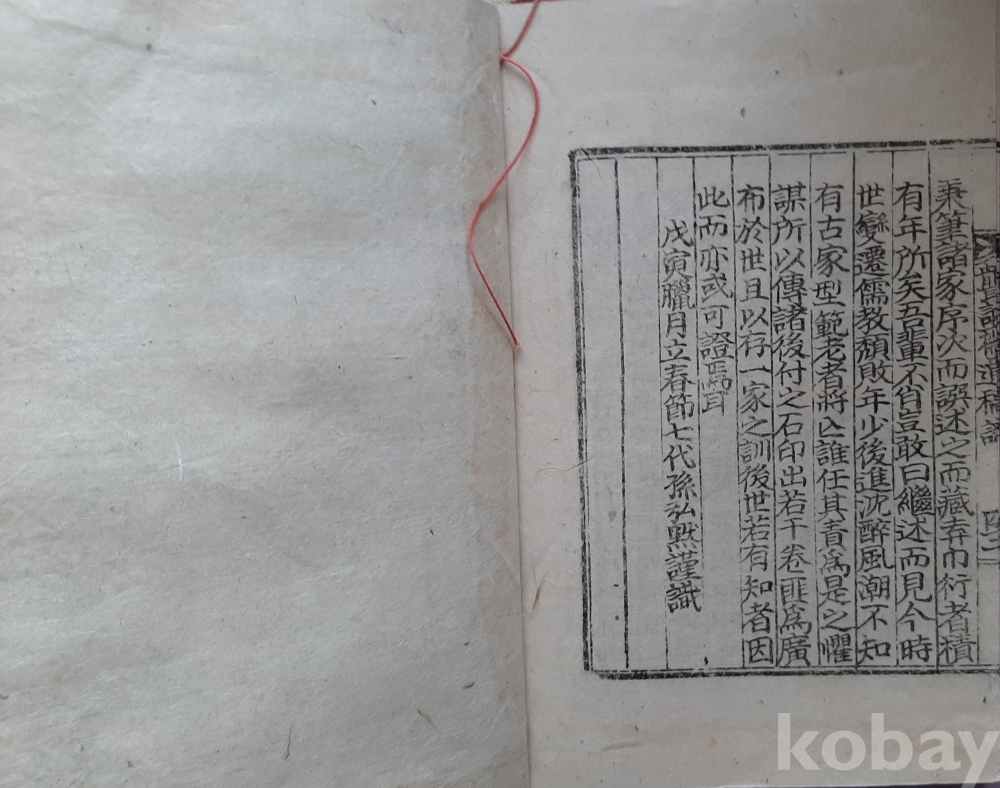 秉筆諸家序次而譔述之而藏弆巾衍者積
有年所矣吾輩不肖豈敢曰繼述而見今時
世變遷儒教頹敗年少後進沈醉風潮不知
有古家型範老者將亾誰任其責爲是之懼
謀所以傳諸後付之石印出若干卷匪爲廣
布於世且以存一家之訓後世若有知者因
此而亦或可證焉耳
戊寅臘月立春節七代孫弘默謹識
遺稿
kobay